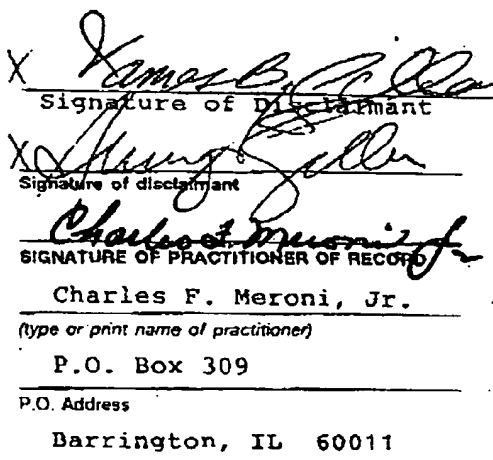 X James B.
Signature of Disclaimant
X
Signature of disclaimant
Charles F. Meroni Jr.
SIGNATURE OF PRACTITIONER OF RECORD
Charles F. Meroni, Jr.
(type or print name of practitioner)
P.O. Box 309
P.O. Address
Barrington, IL 60011